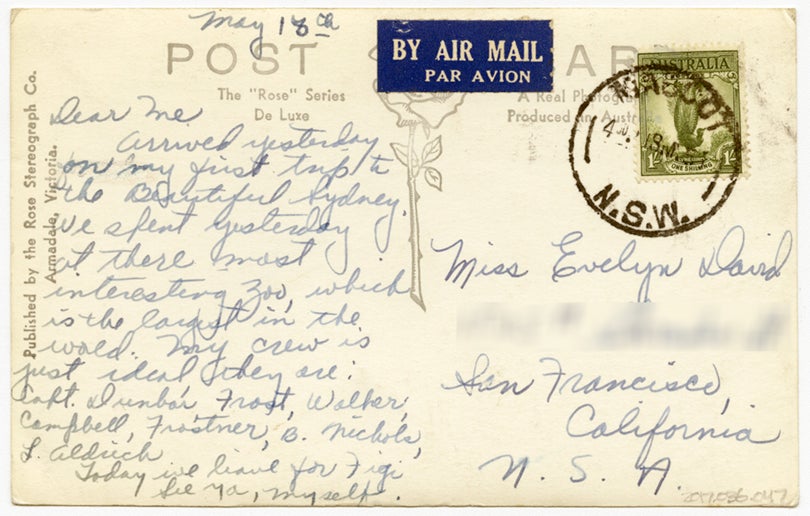 May 18th
POST CARD
BY AIR MAIL
PAR AVION
The "Rose" Series
De Luxe
A Real Photograph
Produced in Australia
AUSTRALIA
1/-
ONE SHILLING
1/-
MASCOT
N.S.W.
Published by the Rose Stereograph Co.
Armadale, Victoria.
Dear Me
Arrived yesterday
on my first trip to
the Beautiful Sydney.
We spent yesterday
at there most
interesting Zoo, which
is the largest in the
world. My crew is
just ideal, they are:
Capt. Dunbar, Frost, Walker,
Campbell, Frostner, B. Nichols,
L. Aldrich
Today we leave for Figi
See Ya, Myself.
Miss Evelyn David
San Francisco,
California
U. S. A.
2017.036.047